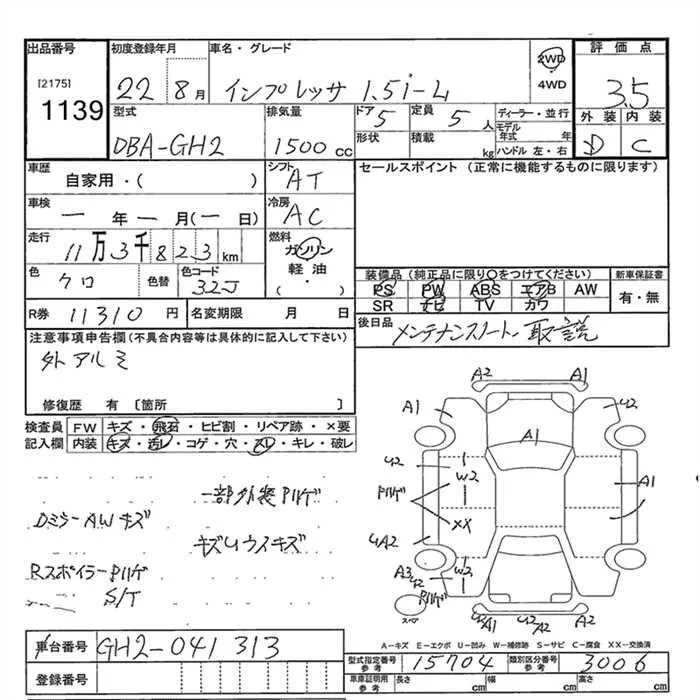 出品番号
[2175]
1139
初度登録年月
22 8月
車名・グレード
インプレッサ 1.5i-L
2WD
4WD
評価点
3.5
外装 内装
D C
型式
DBA-GH2
排気量
1500 cc
ドア
5
定員
5人
形状
積載
kg
ディーラー・並行
モデル年式 年
ハンドル 左・右
車歴
自家用・( )
シフト
AT
セールスポイント (正常に機能するものに限ります)
車検
一年一月(一日)
冷房
AC
走行
11万3千823km
燃料
ガソリン
軽油
( ・ )
色
クロ
色替
色コード
32J
装備品 (純正品に限り○をつけてください)
PS PW ABS エアB AW
SR ナビ TV カワ
新車保証書
有・無
R券 11310円
名変期限 月 日
後日品
メンテナンスノート、取説
注意事項申告欄 (不具合内容等は具体的に記入して下さい)
外アルミ
修復歴 有 〔箇所 〕
検査員記入欄
FW キズ・飛石・ヒビ割・リペア跡・×要
内装 キズ・汚レ・コゲ・穴・スレ・キレ・破レ
一部外装ハゲ
DミラーAWキズ
キズUウスキズ
Rスポイラーハゲ
S/T
A2 A1
A1 U2
A1
U2 W2
ハゲ
A1
XX
UA2
A3 U2 W2
ハゲ
スペア
U2 A1 U2 A2
A-キズ E-エクボ U-凹み W-補修跡 S-サビ C-腐食 XX-交換済
車台番号 GH2-041313
登録番号
型式指定番号 参考 15704
類別区分番号 参考 3006
車庫証明用 参考 長さ cm 幅 cm 高さ cm